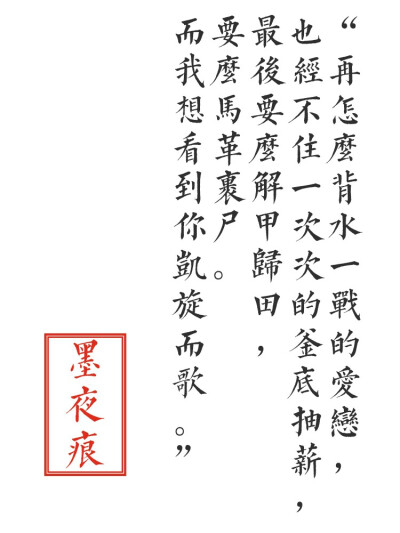 “再怎麼背水一戰的愛戀，
也經不住一次次的釜底抽薪，
最後要麼解甲歸田，
要麼馬革裹尸。
而我想看到你凱旋而歌。”
墨夜痕